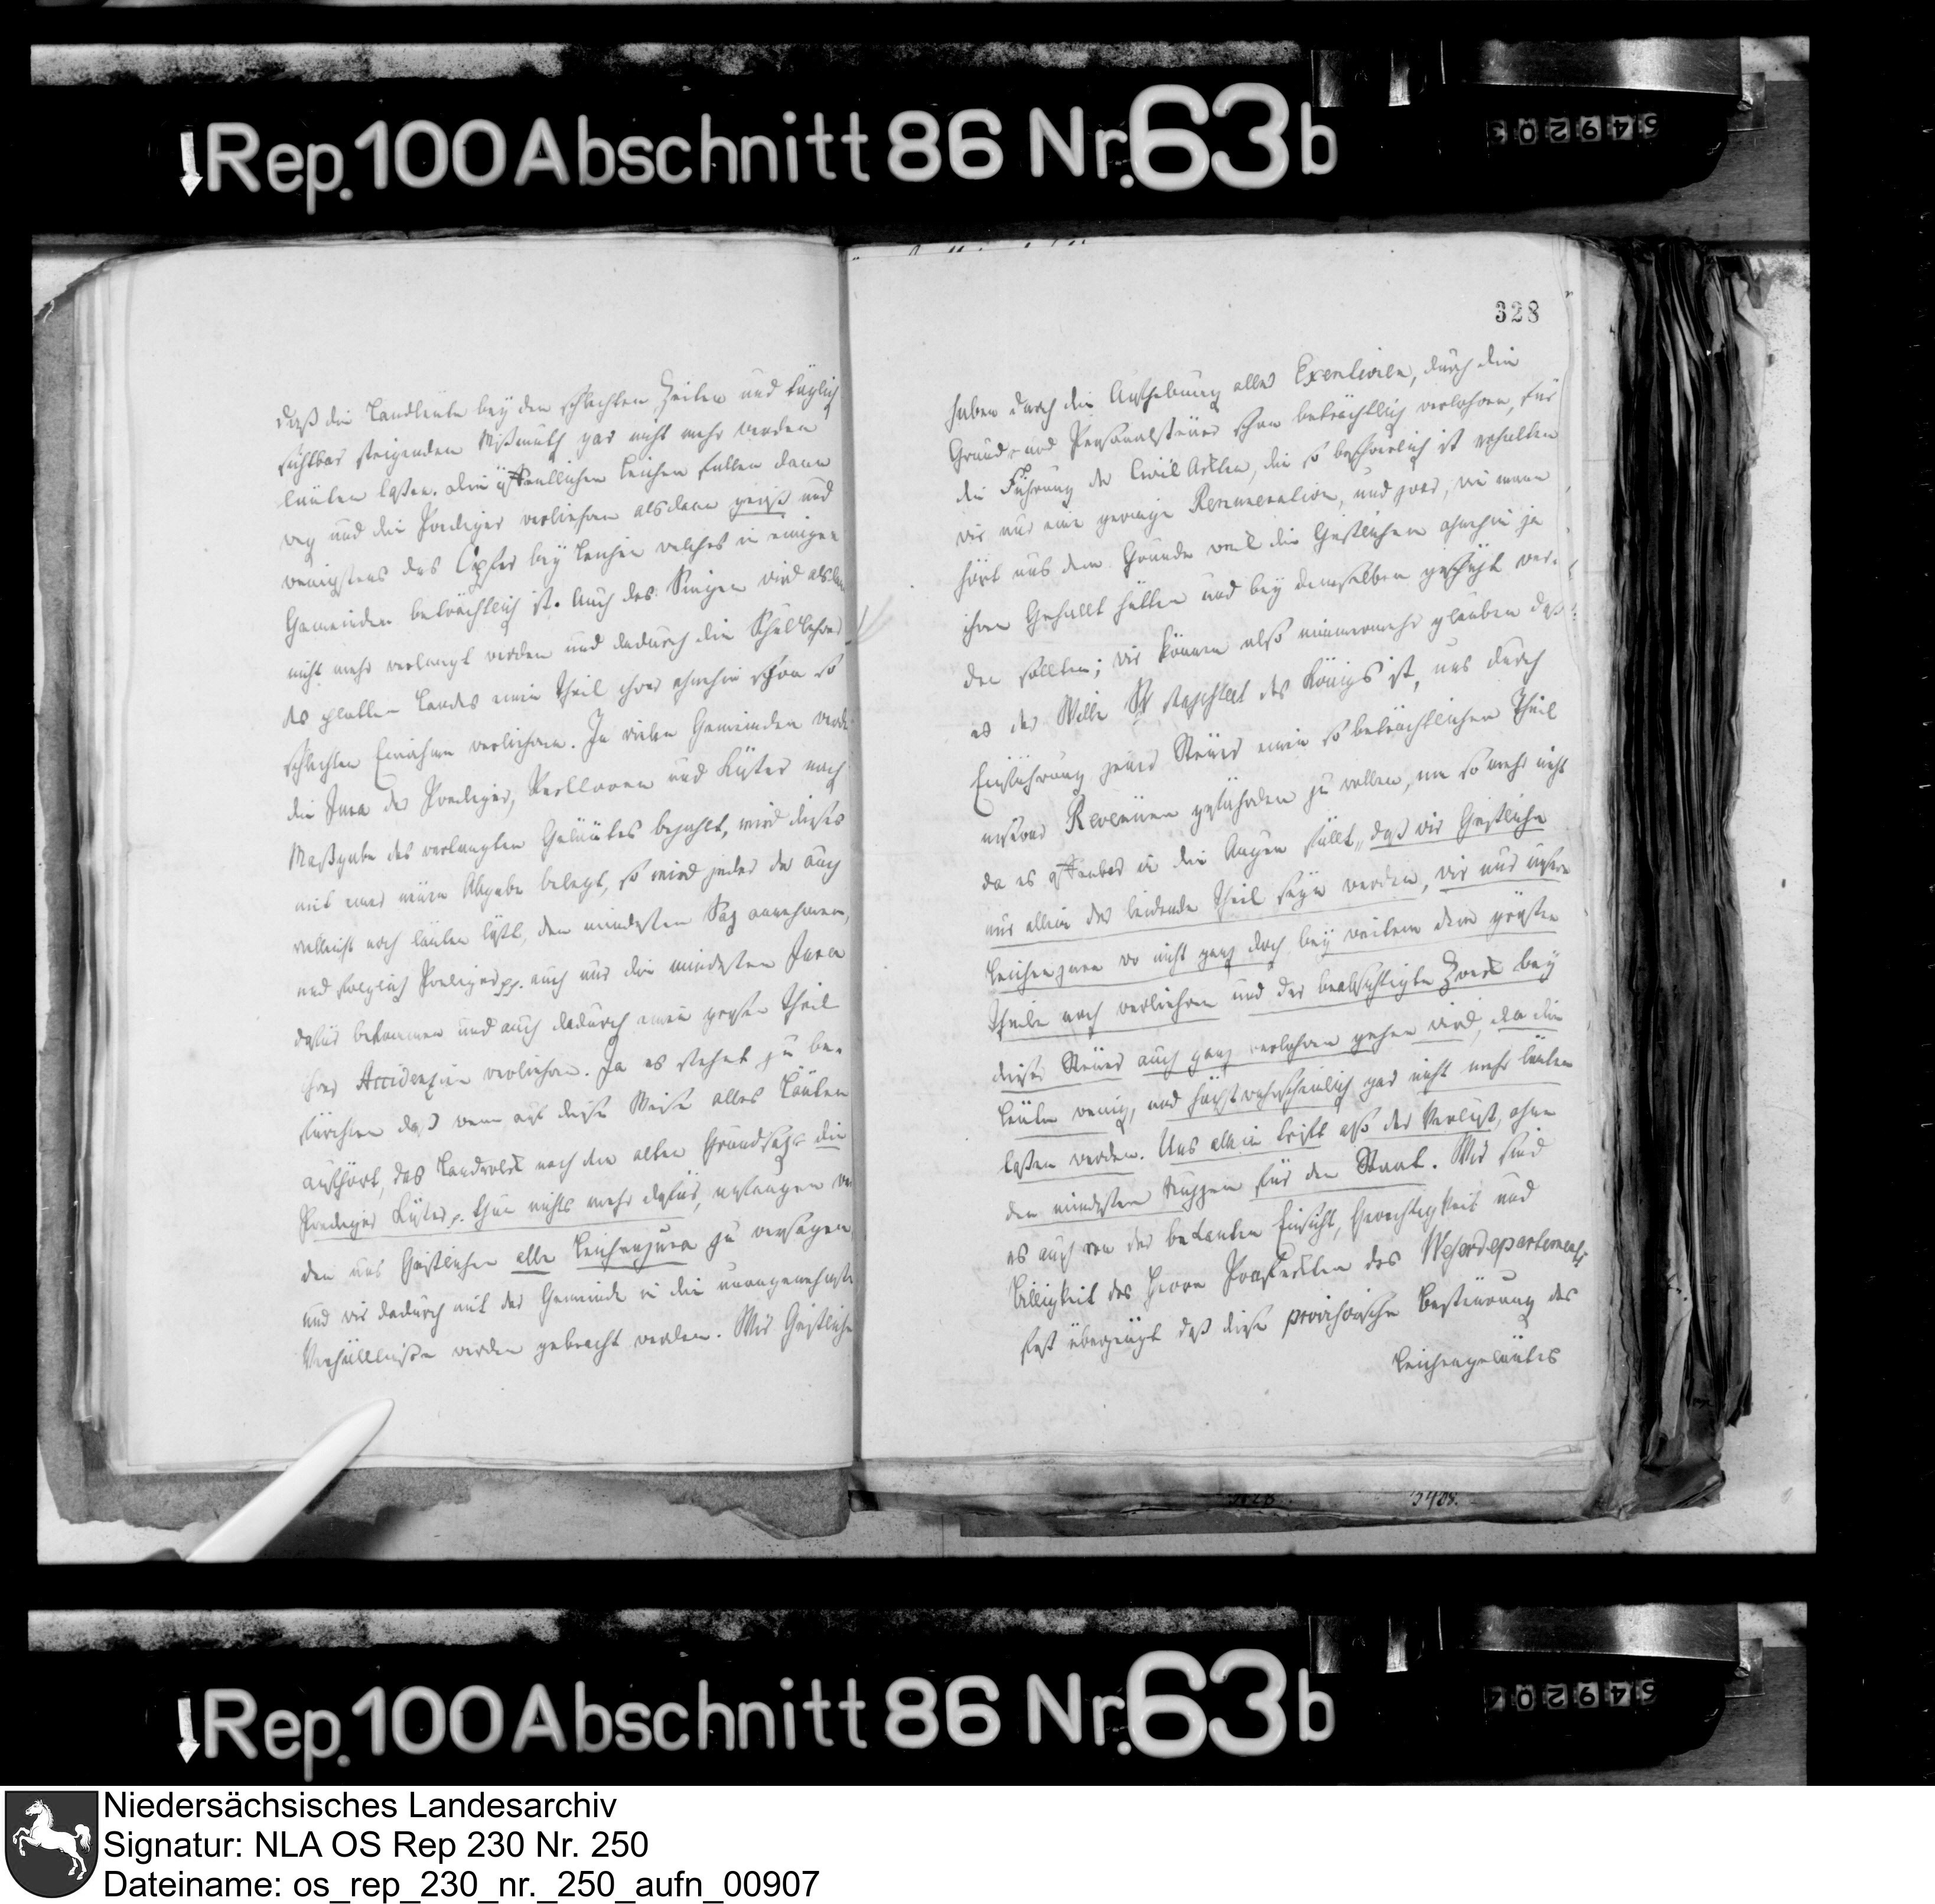 ↓Rep.100Abschnitt 86 Nr.63b
daß die Landleüte bey den schlechten Zeiten und täglich
sichtbar steigenden Mißmuth gar nicht mehr werden
läuten laßen. Die öffentlichen Leichen fallen dann
weg und die Prediger verliehren alsdann gewiß und
wenigstens das Opfer bey Leichen welches in einigen
Gemeinden beträchtlich ist. Auch das Singen wird alsdann
nicht mehr verlangt werden und dadurch die Schullehrer
des platten Landes einen Theil ihrer ohnehin schon so
schlechten Einnahme verliehren. In vielen Gemeinden werden
die Jura der Prediger, Pastoren und Küster nach
Maßgabe des verlangten Geläutes bezahlt, wird dieses
mit einer neüen Abgabe belegt, so wird jeder der auch
vielleicht noch läuten läßt, den mindesten Satz annehmen,
und folglich Prediger pp. auch nur die mindesten Jura
dafür bekommen und auch dadurch einen großen Theil
ihrer Accidenzien verliehren. Ja es stehet zu be-
fürchten daß wenn auf diese Weise alles Läuten
aufhört, das Landvolck nach dem alten Grundsatze die
Prediger Küster p. thun nichts mehr dafür, anfangen wer
den uns Geistlichen alle Leichenjura zu versagen
und wir dadurch mit der Gemeinde in die unangenehmste
Verhältniße werden gebracht werden. Wir Geistliche
328
haben durch die Aufhebung aller Exemtionen, durch die
Grund- und Personalsteüer schon beträchtlich verlohren, für
die Führung der Civil Ackten, die so beschwerlich ist erhalten
wir nur eine geringe Remuneration, und zwar, wie man
hört aus dem Grunde weil die Geistlichen ohnehin ja
ihren Gehallt hätten und bey demselben geschützt wer-
den sollten; wir können also nimmermehr glauben daß
es der Wille Sr Majestaet des Königs ist, uns durch
Einführung jener Steüer einen so beträchtlichen Theil
unserer Revenüen gefährden zu wollen, um so mehr nicht
da es offenbar in die Augen fällt, daß wir Geistliche
nur allein der leidende Theil seyn werden, wir nur unsere
Leichenjura wo nicht ganz doch bey weitem dem grösten
Theile nach verliehren und der beabsichtigte Zweck bey
dieser Steüer auch ganz verlohren gehen wird, da die
Leüte wenig, und höchstwahrscheinlich gar nicht mehr läuten
laßen werden. Uns allein trift also der Verlust, ohne
den mindesten Nutzen für den Staat. Wir sind
es auch von der bekanten Einsicht, Gerechtigkeit und
Billigkeit des Herrn Praefeckten des Weserdepartements
fest überzeügt daß diese provisorische Besteürung des
Leichengeläutes
↓Rep.100Abschnitt 86 Nr.63b
Niedersächsisches Landesarchiv
Signatur: NLA OS Rep 230 Nr. 250
Dateiname: os_rep_230_nr._250_aufn_00907